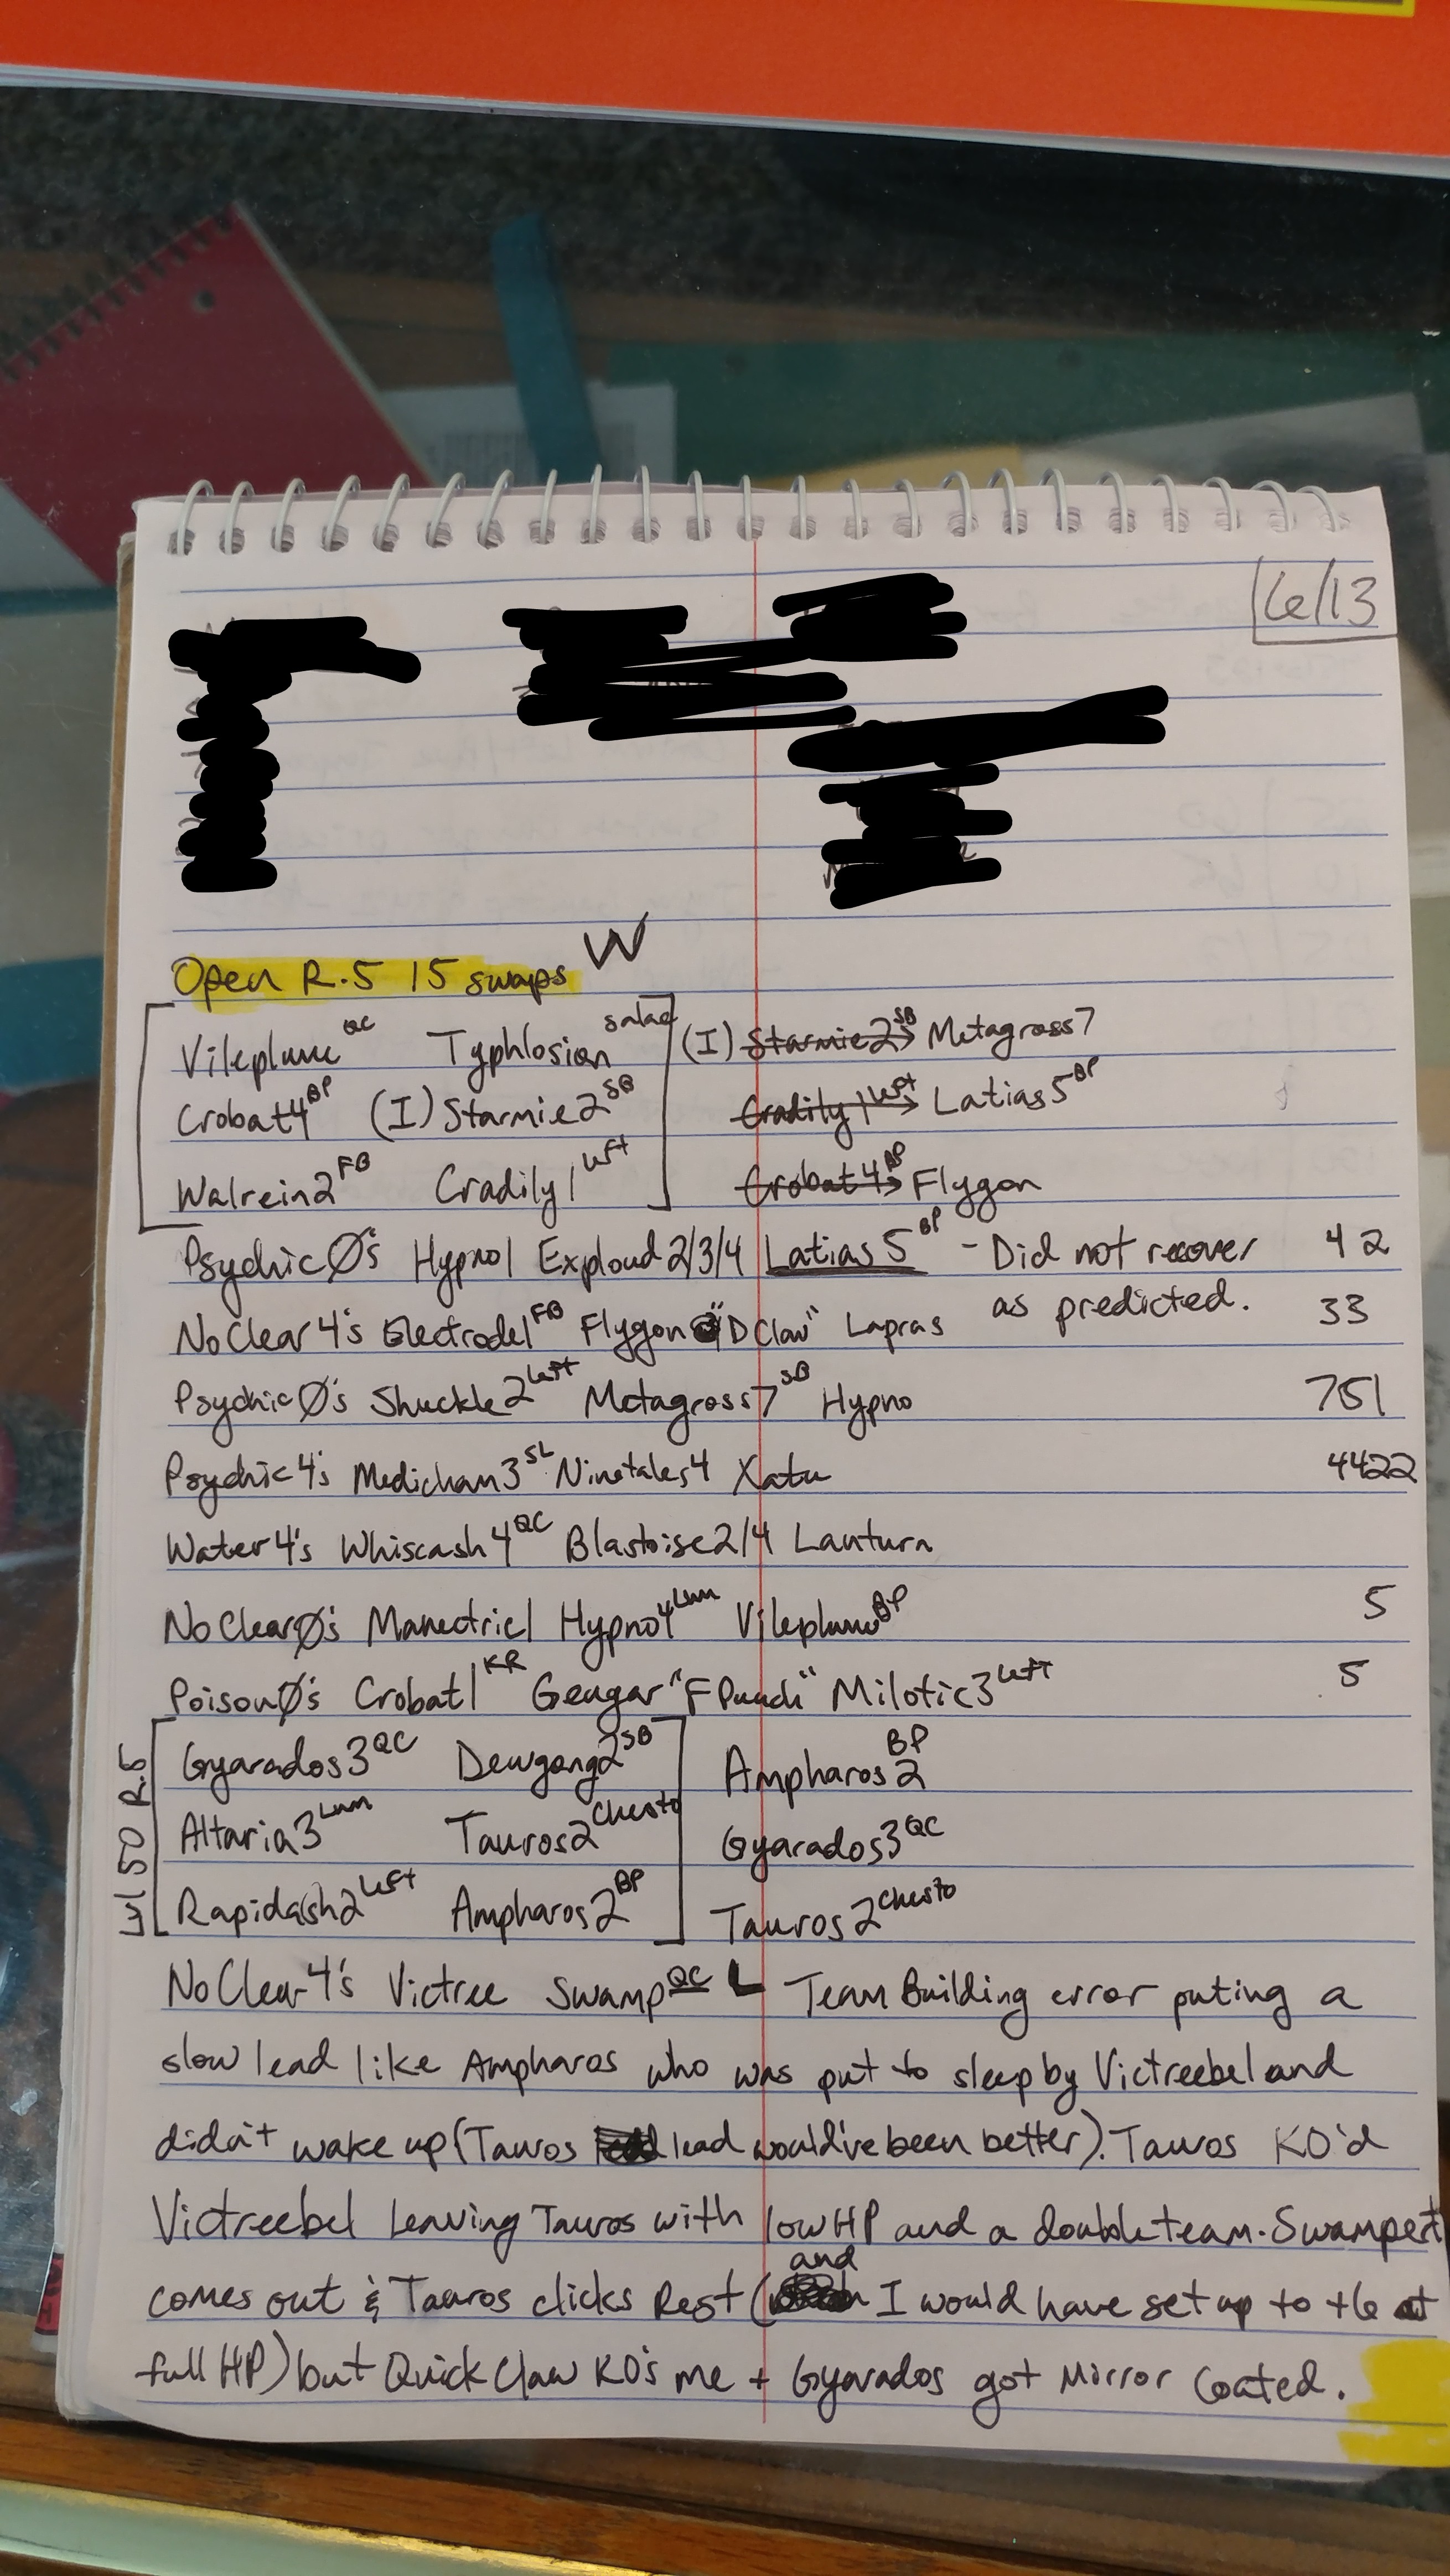 6/13
Open R.5 15 swaps W
Vileplume QC Typhlosion salac (I) Starmie2 SB → Metagross7
Crobat4 BP (I) Starmie2 SB Cradily1 Left → Latias5 BP
Walrein2 FB Cradily1 Left Crobat4 BP → Flygon
PsychicØ's Hypno1 Exploud2/3/4 Latias5 BP - Did not recover 42
as predicted.
NoClear4's Electrode1 FB Flygon "DClaw" Lapras 33
PsychicØ's Shuckle2 Left Metagross7 SB Hypno 751
Psychic4's Medicham3 SL Ninetales4 Xatu 4422
Water4's Whiscash4 QC Blastoise2/4 Lanturn
NoClearØ's Manectric1 Hypno4 Lum Vileplume BP 5
PoisonØ's Crobat1 KR Gengar "FPunch" Milotic3 Left 5
Lvl 50 R.5
Gyarados3 QC Dewgong2 SB Ampharos2 BP
Altaria3 Lum Tauros2 Chesto Gyarados3 QC
Rapidash2 Left Ampharos2 BP Tauros2 Chesto
NoClear4's Victree Swamp QC L Team Building error puting a
slow lead like Ampharos who was put to sleep by Victreebel and
didn't wake up (Tauros lead would've been better). Tauros KO'd
Victreebel leaving Tauros with low HP and a double team. Swampert
comes out & Tauros clicks Rest (and I would have set up to +6 at
full HP) but Quick Claw KO's me + Gyarados got Mirror Coated.